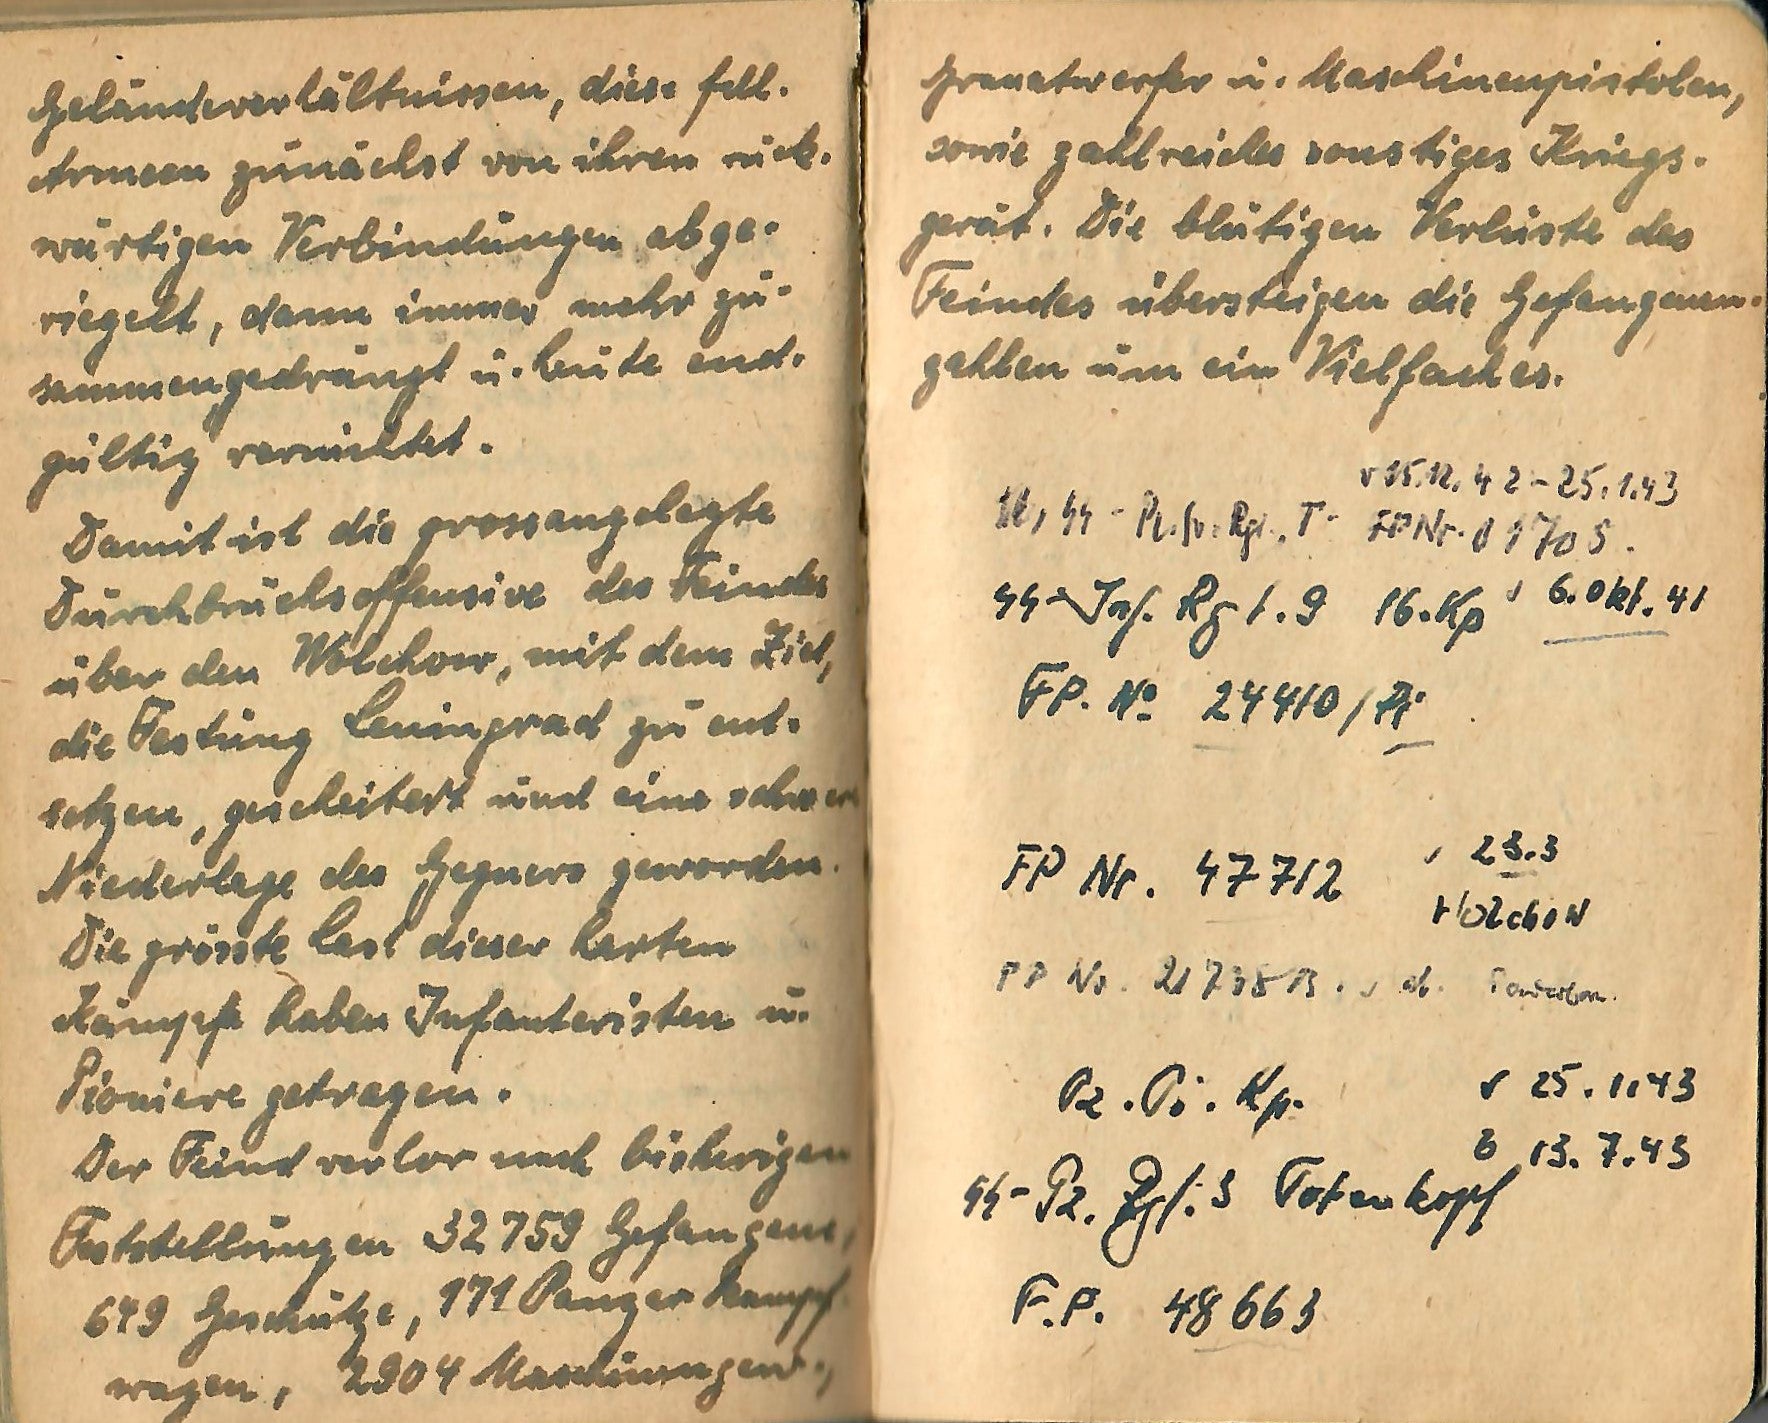 Geländeverhältnissen, diese fdl.
Armeen zunächst von ihren rück-
wärtigen Verbindungen abge-
riegelt, dann immer mehr zu-
sammengedrängt u. heute end-
gültig vernichtet.
Damit ist die grossangelegte
Durchbruchsoffensive des Feindes
über den Wolchow, mit dem Ziel,
die Festung Leningrad zu ent-
setzen, gescheitert und eine schwere
Niederlage des Gegners geworden.
Die grösste Last dieser harten
Kämpfe haben Infanteristen u.
Pioniere getragen.
Der Feind verlor nach bisherigen
Feststellungen 32759 Gefangene,
649 Geschütze, 171 Panzerkampf-
wagen, 2904 Maschinengew.,
Granatwerfer u. Maschinenpistolen,
sowie zahlreiches sonstiges Kriegs-
gerät. Die blutigen Verluste des
Feindes übersteigen die Gefangenen-
zahlen um ein Vielfaches.
v 15.12.42 - 25.1.43
SS - Rgt. T- FP Nr. 01705.
SS - Inf. Rgt. 9 16. Kp v 6. Okt. 41
FP. No 24410 /
FP Nr. 47712 v 23.3
Wolchow
FP Nr. 21738 B.
Pz. Pi. Kp. v 25.1.43
b 13.7.43
SS - Pz. Rgt. 3 Totenkopf
F.P. 48663